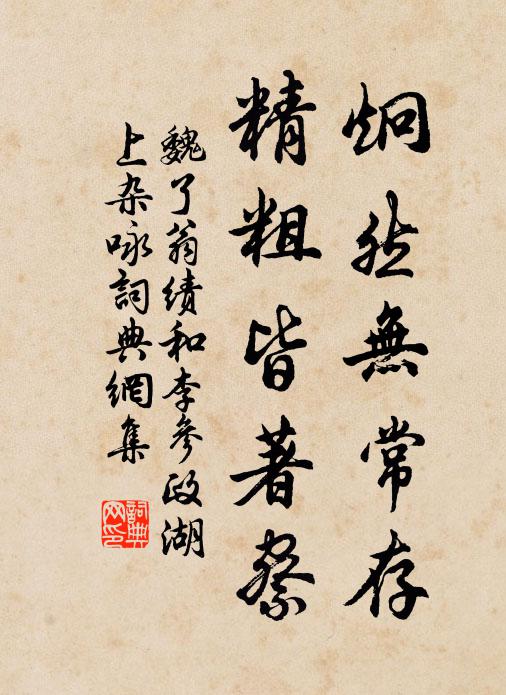 炯然無常存
精粗皆著察
魏了翁绩和李參政湖
上杂咏詞典網集
詞典
网印